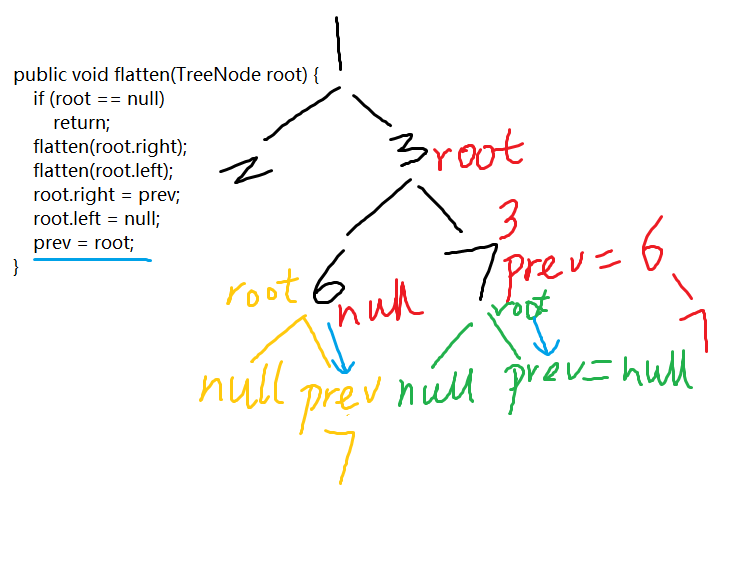 public void flatten(TreeNode root) {
if (root == null)
return;
flatten(root.right);
flatten(root.left);
root.right = prev;
root.left = null;
prev = root;
}
1
2
3 root
3
6 7
prev = 6
7
root
null
root
null prev
7
null prev=null